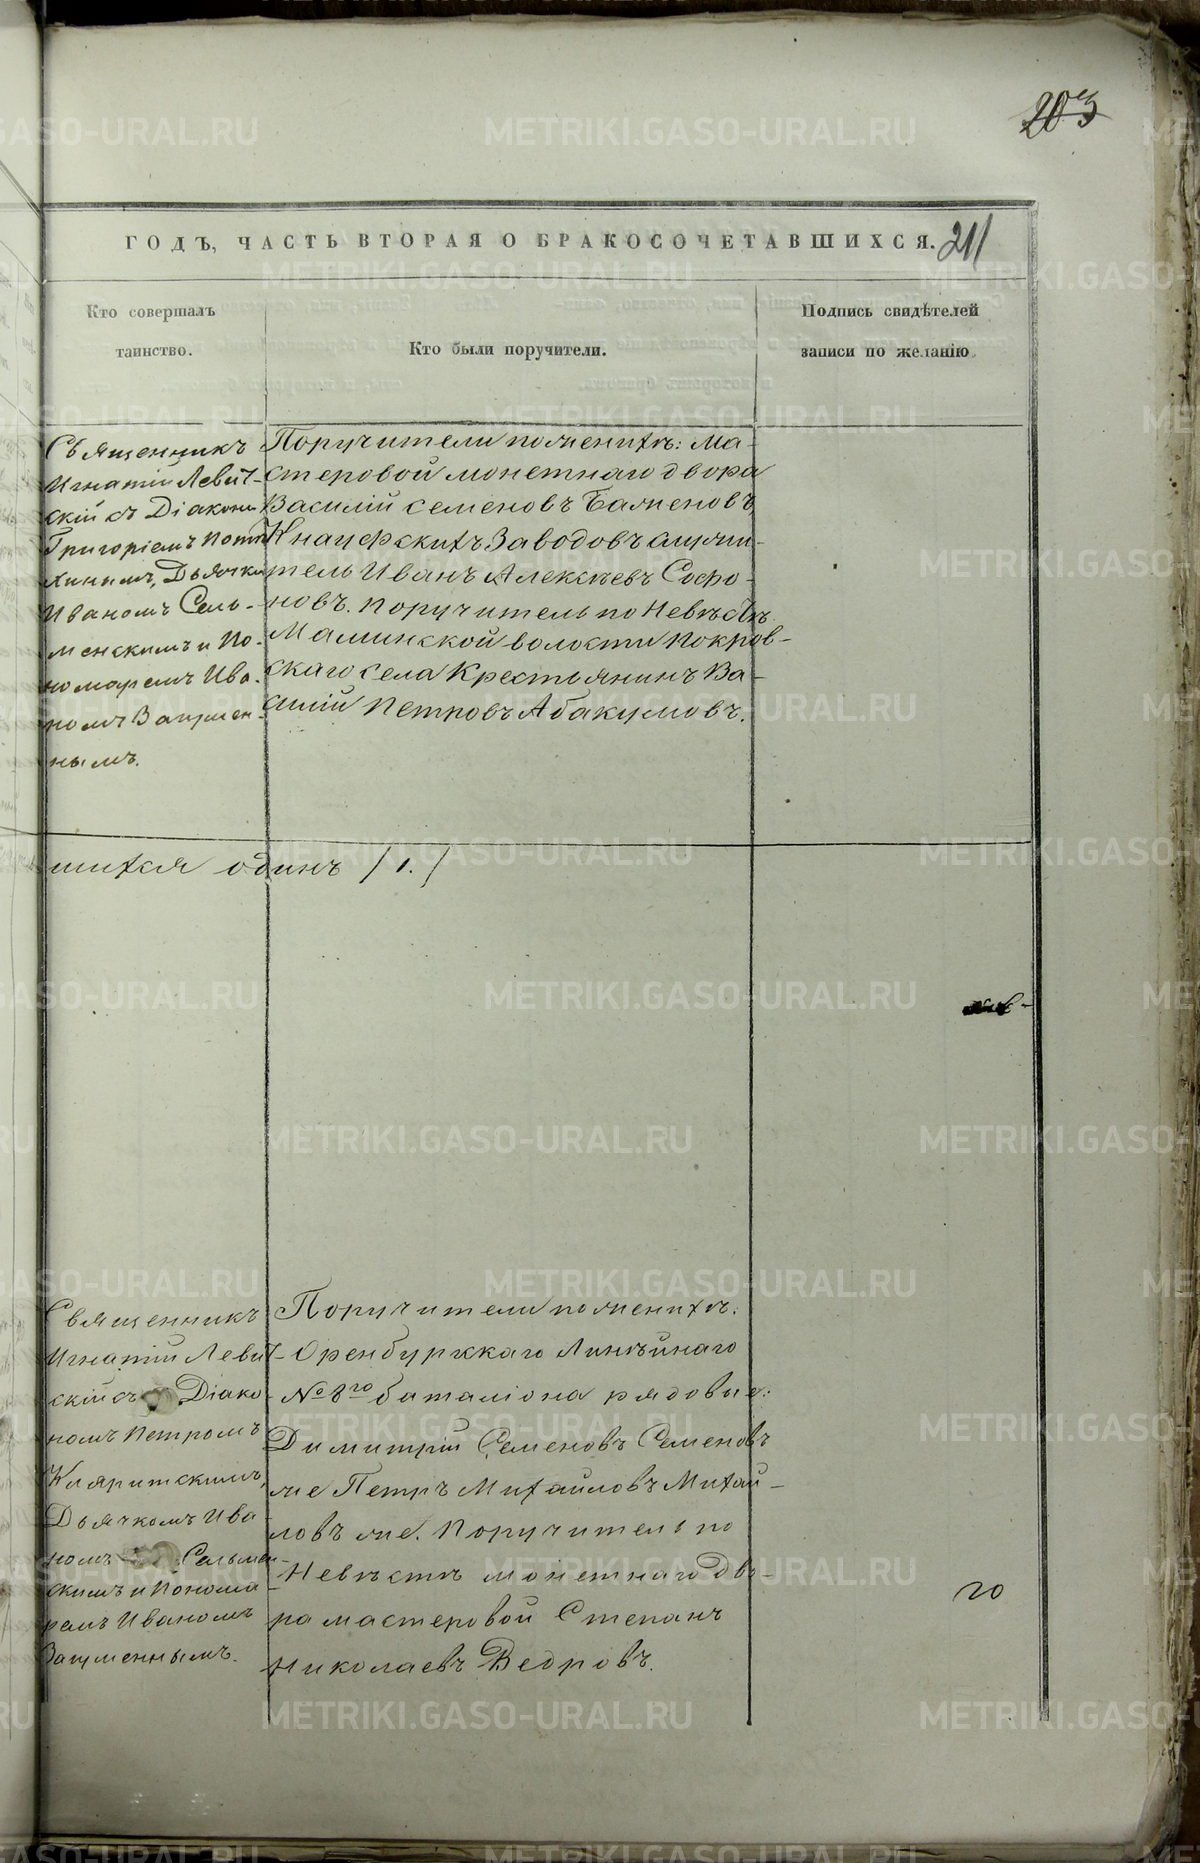 203
ГОДЪ, ЧАСТЬ ВТОРАЯ О БРАКОСОЧЕТАВШИХСЯ. 211
Кто совершалъ
таинство.
Кто были поручители.
Подпись свидѣтелей
записи по желанію.
Священникъ
Игнатій Левит-
скій съ Діакономъ
Григоріемъ Попо
Дьячко
Иваномъ Сель-
менскимъ и По-
номаремъ Ива-
номъ Вагумен-
нымъ.
Поручители по женихѣ: Ма-
стеровой монетнаго двора
Василій Семеновъ Баженовъ
Кнауфскихъ Заводовъ служи-
тель Иванъ Алексѣевъ Софо-
новъ. Поручитель по Невѣстѣ
Маминской волости Покров-
скаго села Крестьянинъ Ва-
силій Петровъ Абакумовъ.
шихся одинъ /1./
Священникъ
Игнатій Левит-
скій съ Діако-
номъ Петромъ
Дьячкомъ Ива-
номъ Сельмен-
скимъ и Понома-
ремъ Иваномъ
Вагуменнымъ.
Поручители по женихѣ:
Оренбургскаго Линѣйнаго
№ 8го баталіона рядовые:
Димитрій Семеновъ Семеновъ
же Петръ Михайловъ Михай-
ловъ же. Поручитель по
Невѣстѣ монетнаго дво-
ра мастеровой Степанъ
Николаевъ Ведровъ.
го
METRIKI.GASO-URAL.RU